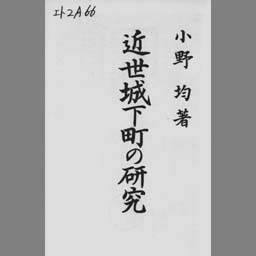 エト2A66
小野均著
近世城下町の研究